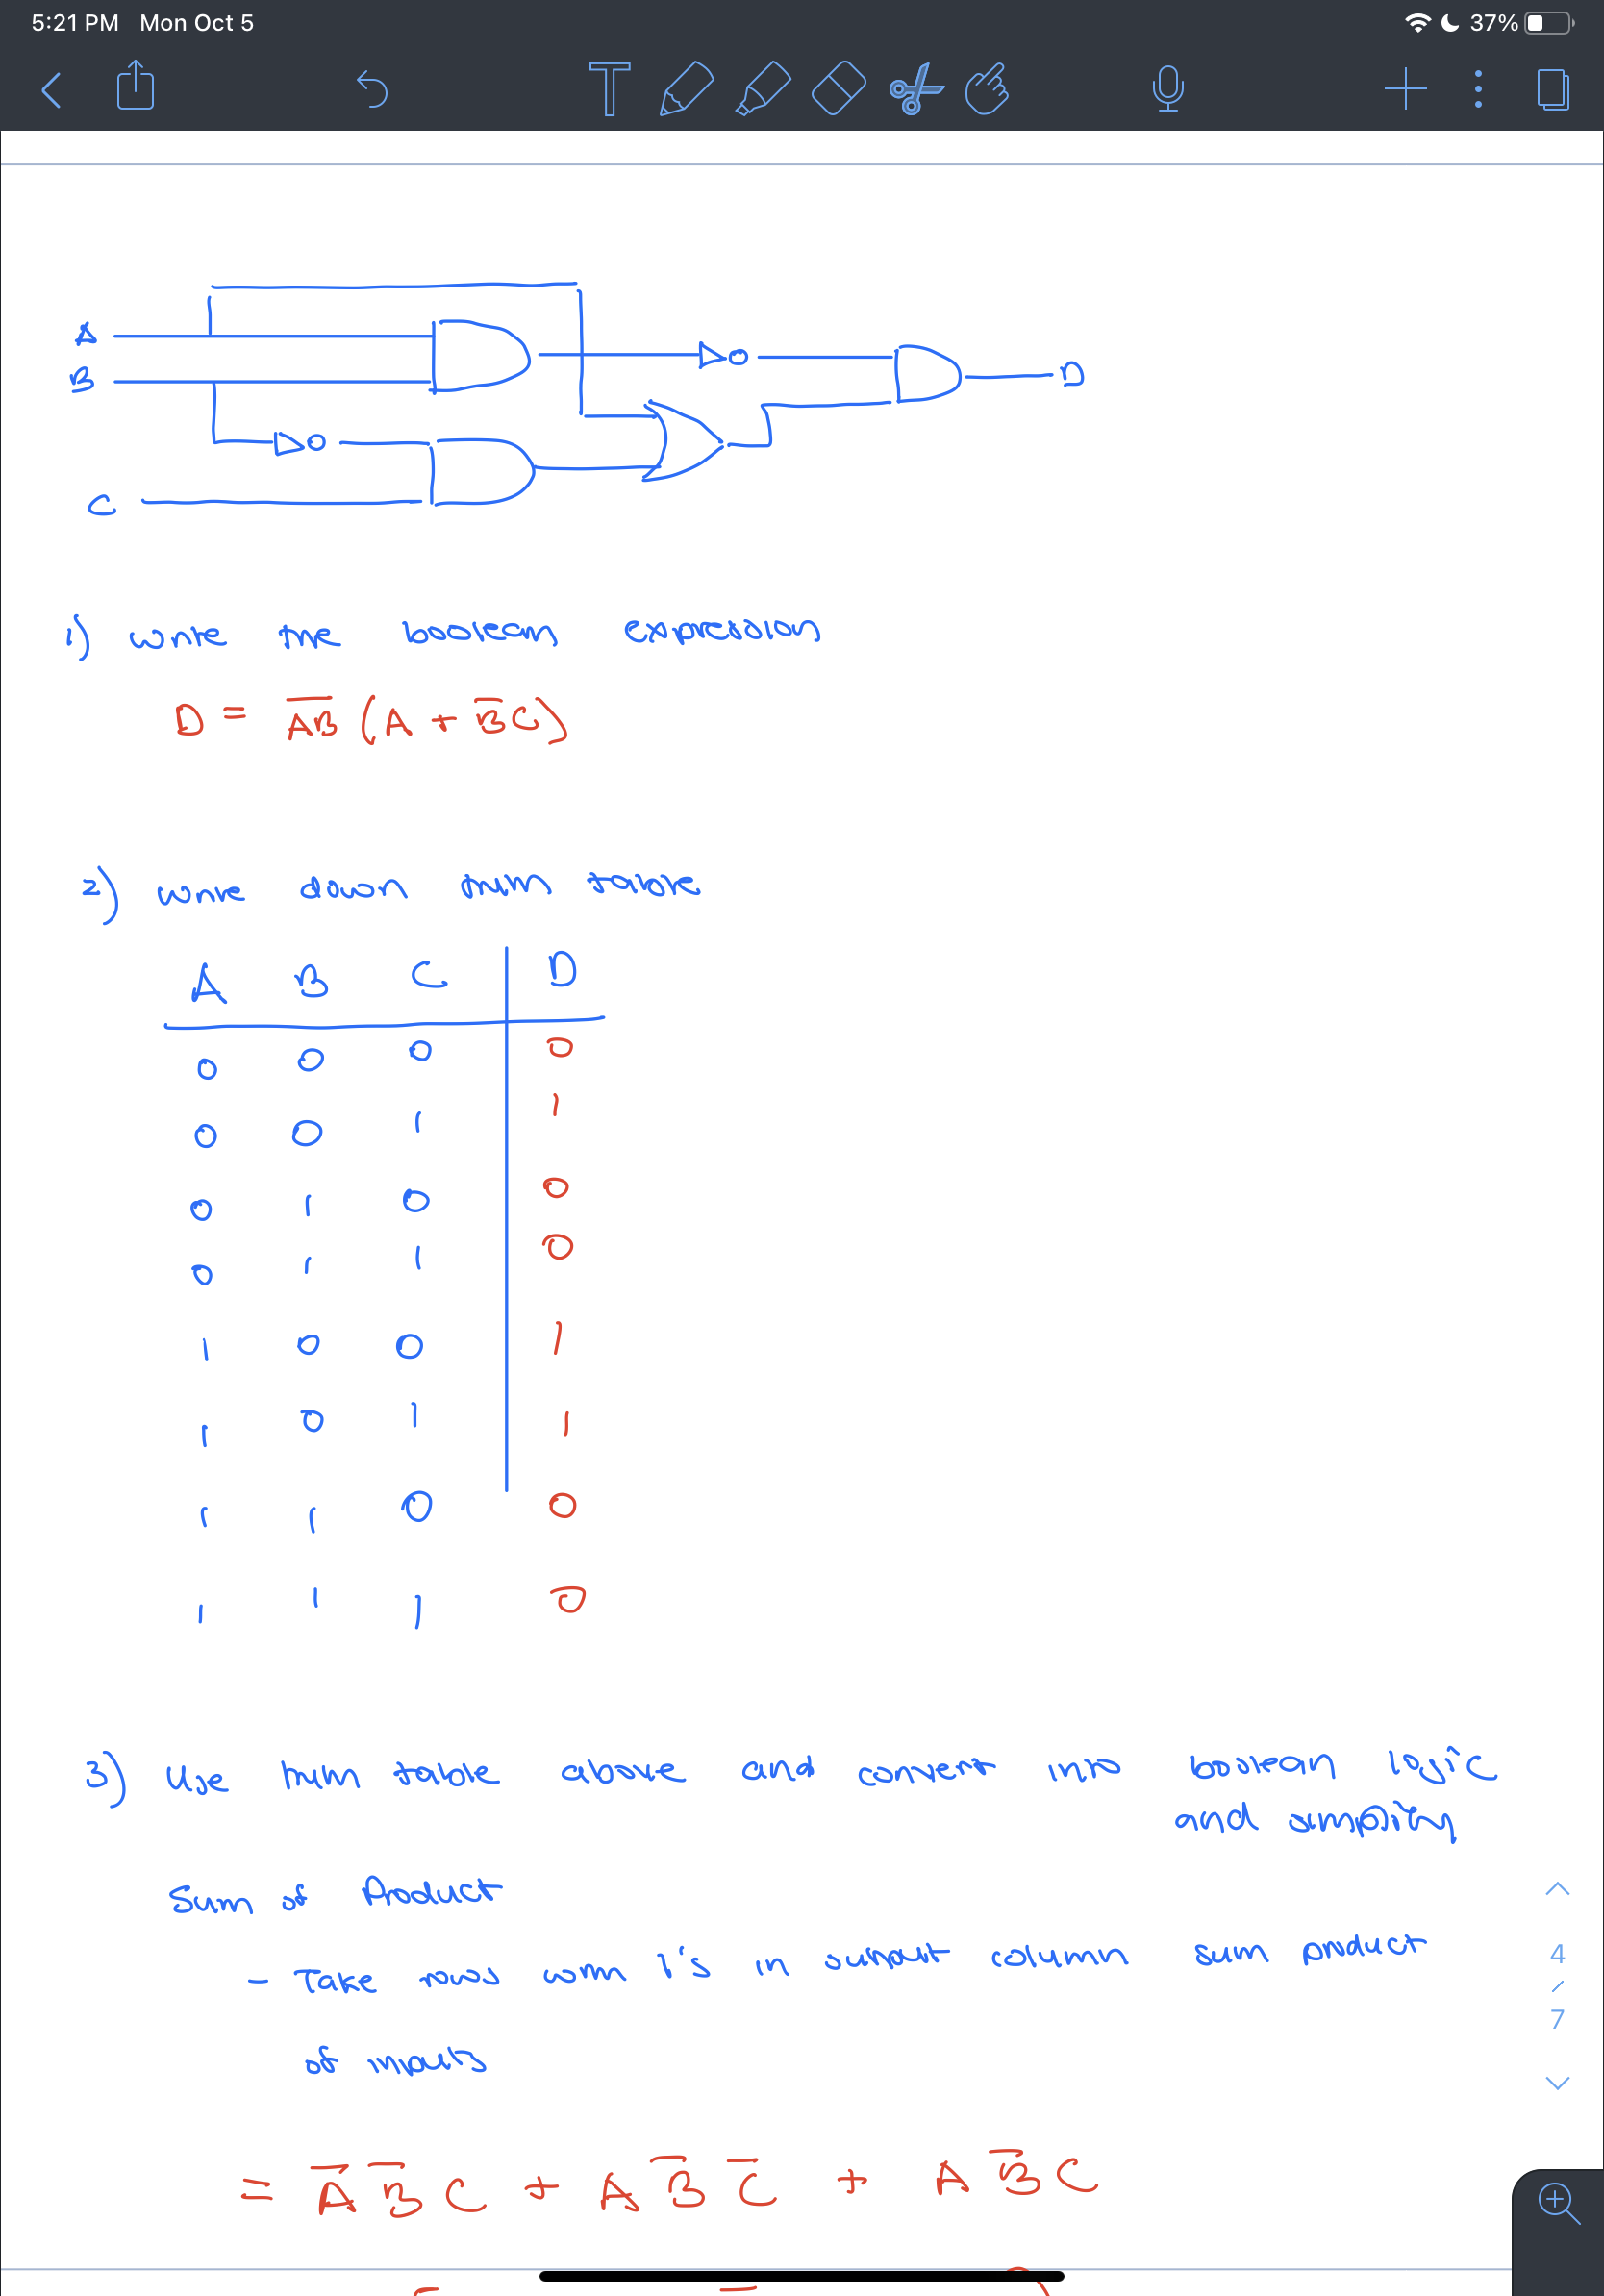 5:21 PM Mon Oct 5 37%
T
A
B
C
D
1) write the boolean expression
D = \overline{AB} (A + \overline{B}C)
2) write down truth table
A B C D
0 0 0 0
0 0 1 1
0 1 0 0
0 1 1 0
1 0 0 1
1 0 1 1
1 1 0 0
1 1 1 0
3) Use truth table above and convert into boolean logic
and simplify
Sum of Product
- Take rows with 1's in output column sum product
of inputs
4
/
7
= \overline{A} \overline{B} C + A \overline{B} \overline{C} + A \overline{B} C